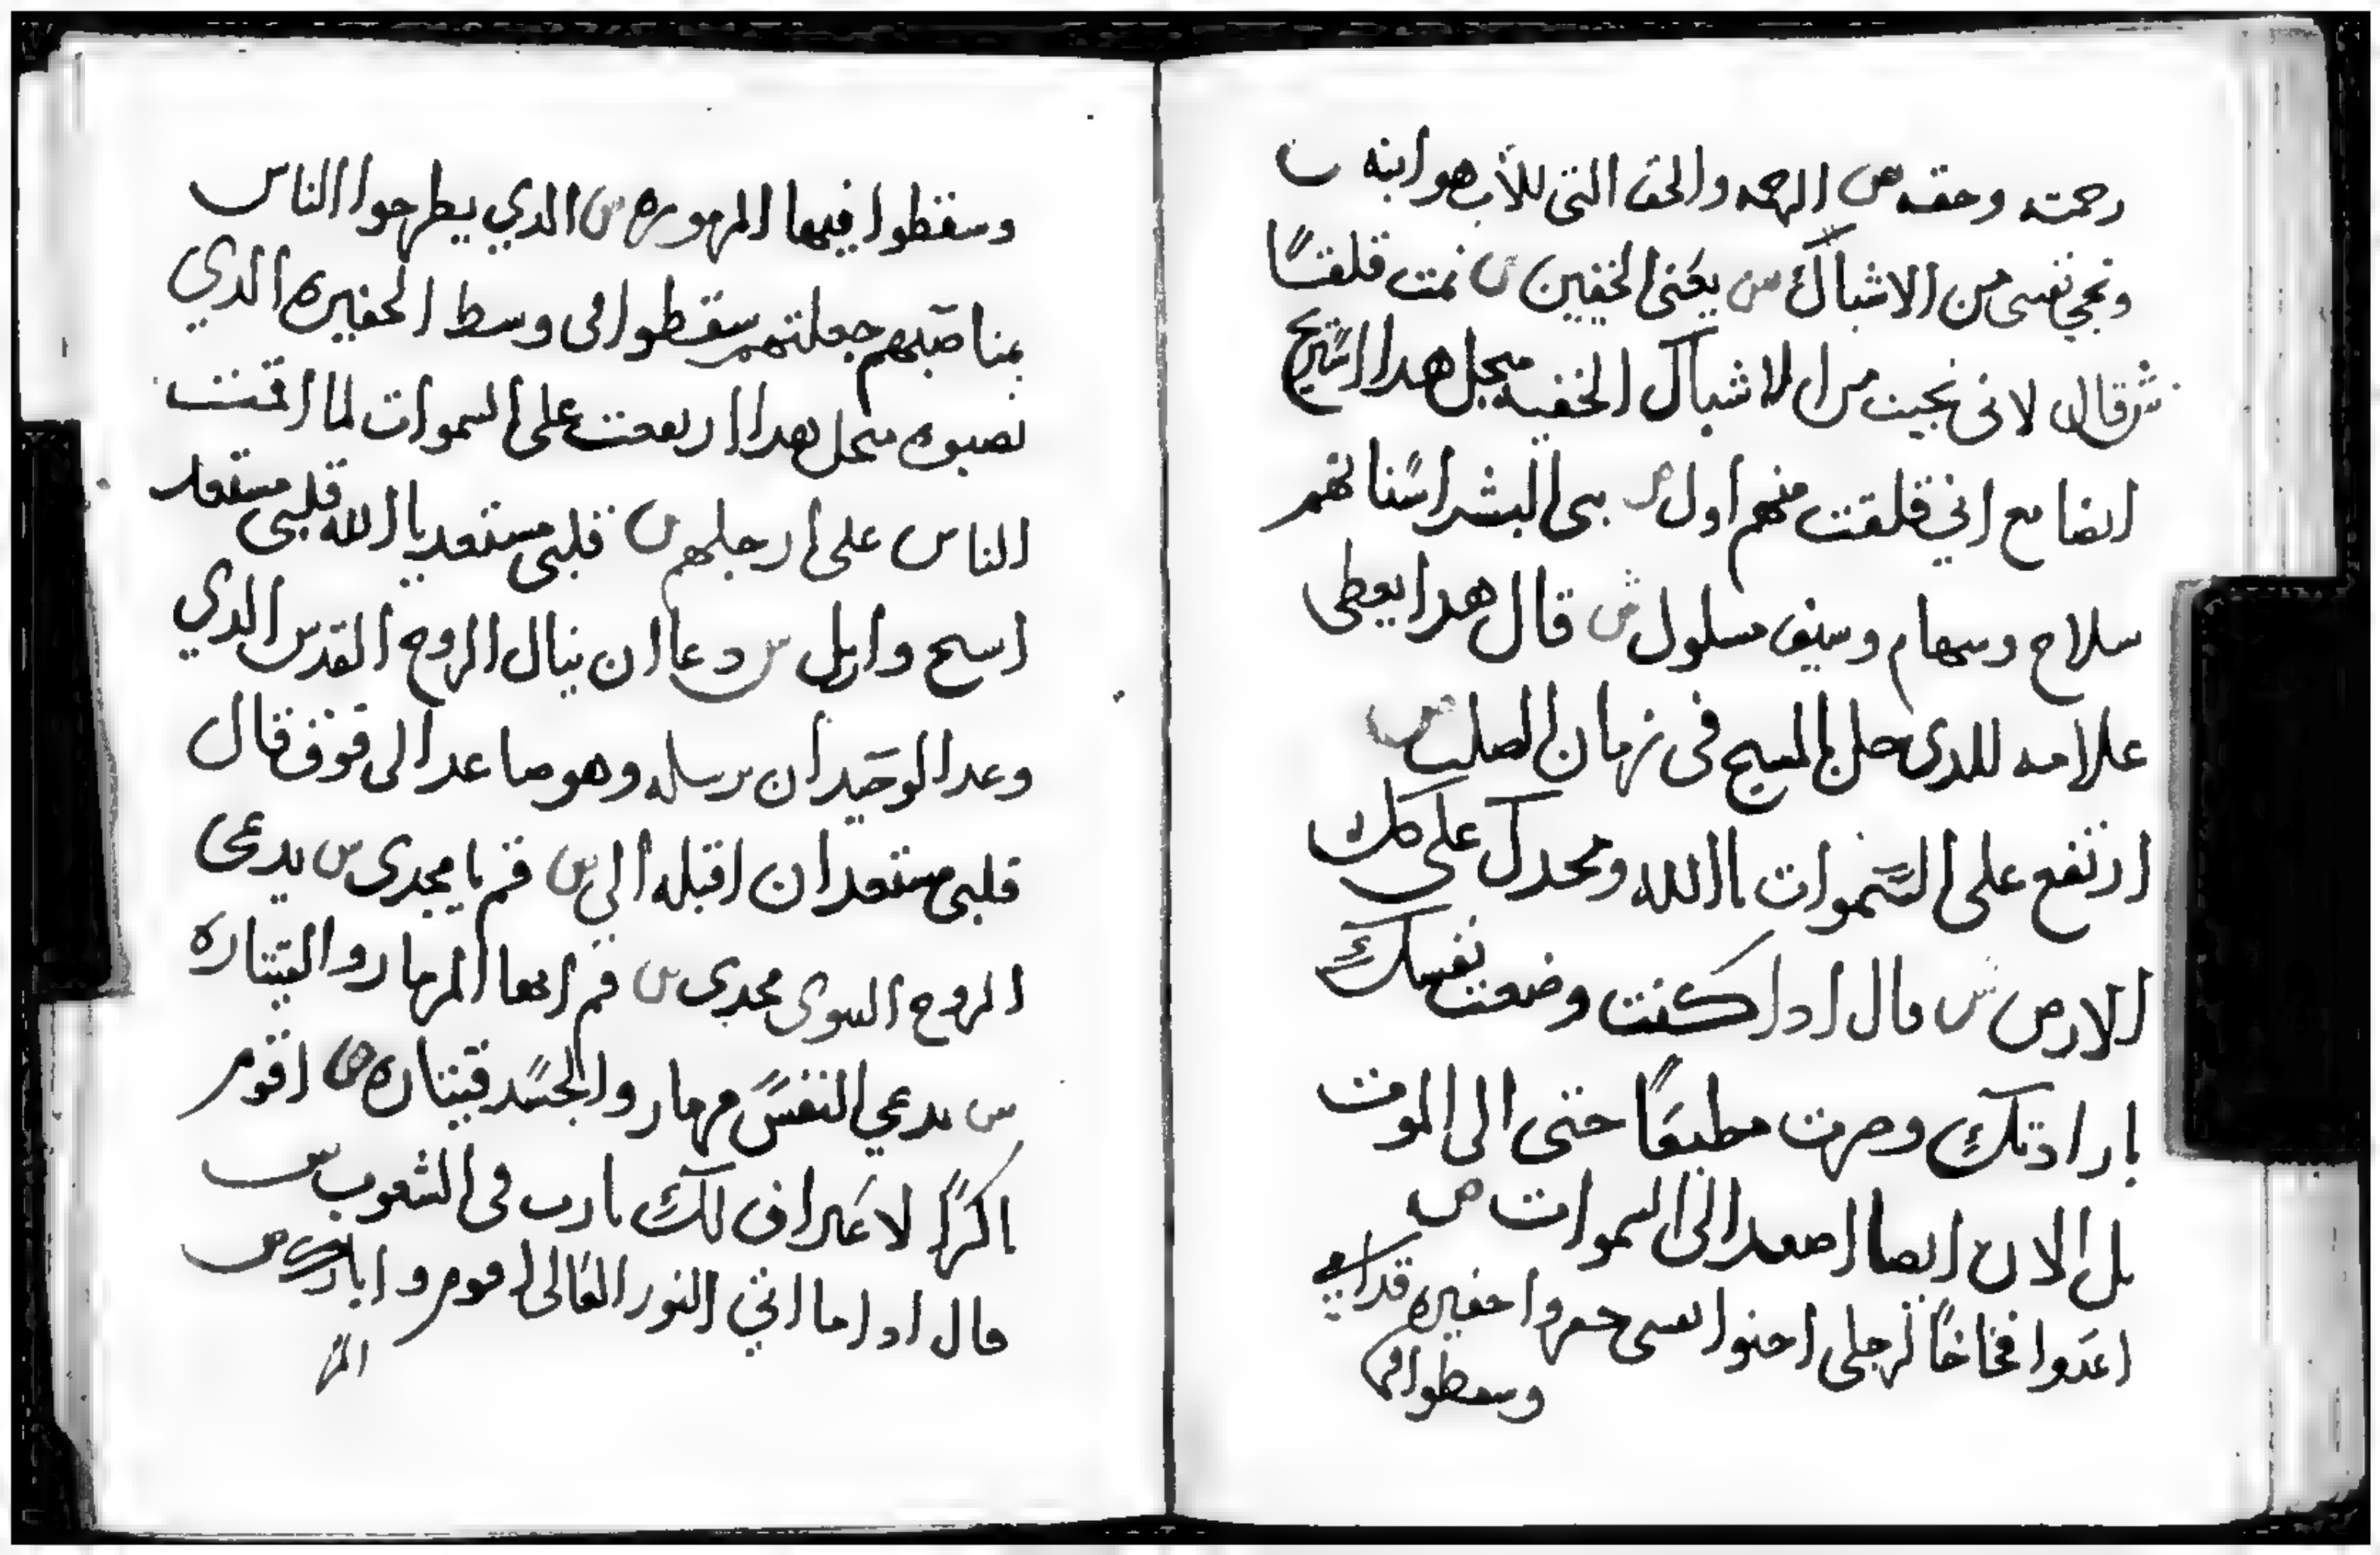 رحمته وحقه ص الرحمه والحق التى للأب هو ابنه
ونجي نفسى من الاشباك س يعنى الخفيين ں نمت قلقًا
ش قال لانى نجيت من الاشباك الخفيه مجل هدا استريح
ايضا مع اني قلقت منهم اول ص بنى البشر اسنانهم
سلاح وسهام وسيف مسلول ش قال هدا يعطى
علامه للدى حل بالمسيح فى زمان الصلب ص
ارتفع على السموات يا الله ومجدك على كل
الارض ش قال ادا كنت وضعت نفسك
بارادتك وصرت مطيعًا حتى الى الموت
بل الان ايضا اصعد الى السموات ص
اعدوا فخاخًا لرجلى احنوا نفسى حفروا حفيره قدامي
وسقطوا فيها
وسقطوا فيها المهوره س الدي يطرحوا الناس
بمناصبهم جعلتهم سقطوا فى وسط الحفيره الدي
نصبوه مجل هدا ارتفعت على السموات لما اقمت
الناس على ارجلهم ں قلبى مستعد يا الله قلبى مستعد
اسبح وارتل س دعا ان ينال الروح القدس الدي
وعد الوحيد ان يرسله وهو صاعد الى فوق قال
قلبى مستعد ان اقبله الي س قم يا مجدى س يدعى
الروح النبوى مجدى س قم ايها المزمار والقيتاره
س يدعي النفس مزمار والجسد قيتاره ص اقوم
باكرًا لاعترف لك يارب فى الشعوب س
قال ادا ما اتي النور العالى اقوم واباركك ص